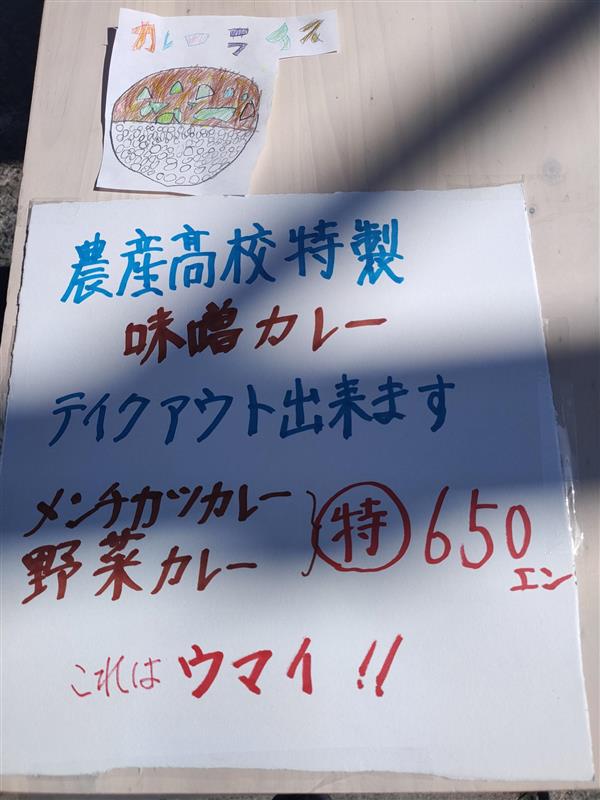 カレーライス
農産高校特製
味噌カレー
テイクアウト出来ます
メンチカツカレー
野菜カレー
特 650
エン
これはウマイ!!